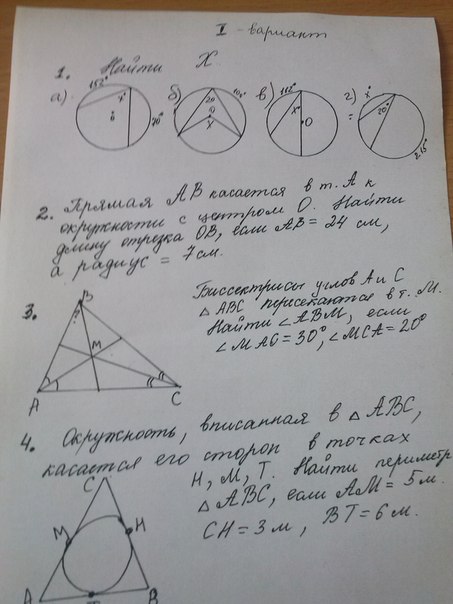 I - вариант
1. Найти X
а) 152° x° 70° б) 20 x 104° в) 112° x° O г) x° 20° 215°
2. Прямая AB касается в т. A к
окружности с центром O. Найти
длину отрезка OB, если AB = 24 см,
а радиус = 7 см.
3. Биссектрисы углов A и C
△ABC пересекаются в т. M.
Найти ∠ABM, если
∠MAC = 30°, ∠MCA = 20°
B
M
A C
4. Окружность, вписанная в △ABC,
касается его сторон в точках
H, M, T. Найти периметр
△ABC, если AM = 5 м.
CH = 3 м, BT = 6 м.
C
M H
A T B